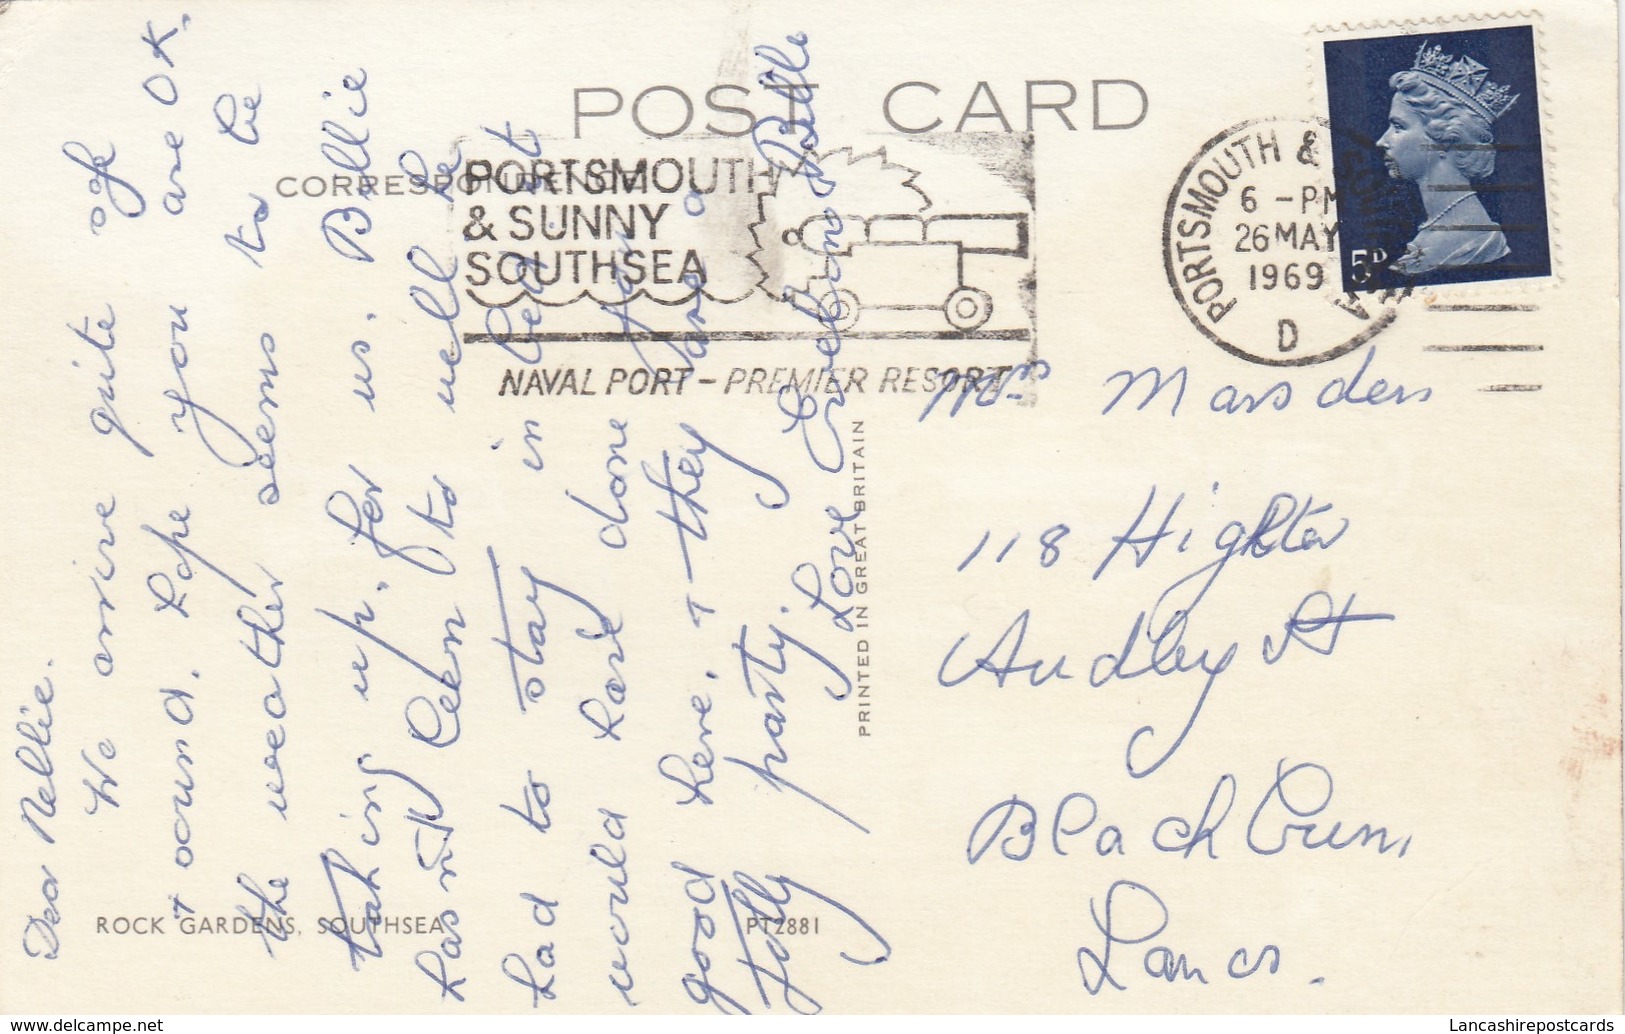 POST CARD
CORRESPONDENCE
PORTSMOUTH
& SUNNY
SOUTHSEA
NAVAL PORT – PREMIER RESORT
PORTSMOUTH &
6 - PM
26 MAY
1969
D
5D
Dear Nellie.
We arrive quite of
+ ound. Hope you are OK.
the weather seems to be
taking up. for us. Billie
hasn't been to well he
had to stay in bed
would have done
good here. + they are a
Jolly party.
Love Evelin & Billie
Mrs Marsden
118 Highter
Audley St
Blackburn,
Lancs.
PRINTED IN GREAT BRITAIN
ROCK GARDENS, SOUTHSEA
PT2881
https://www.delcampe.net
Lancashirepostcards